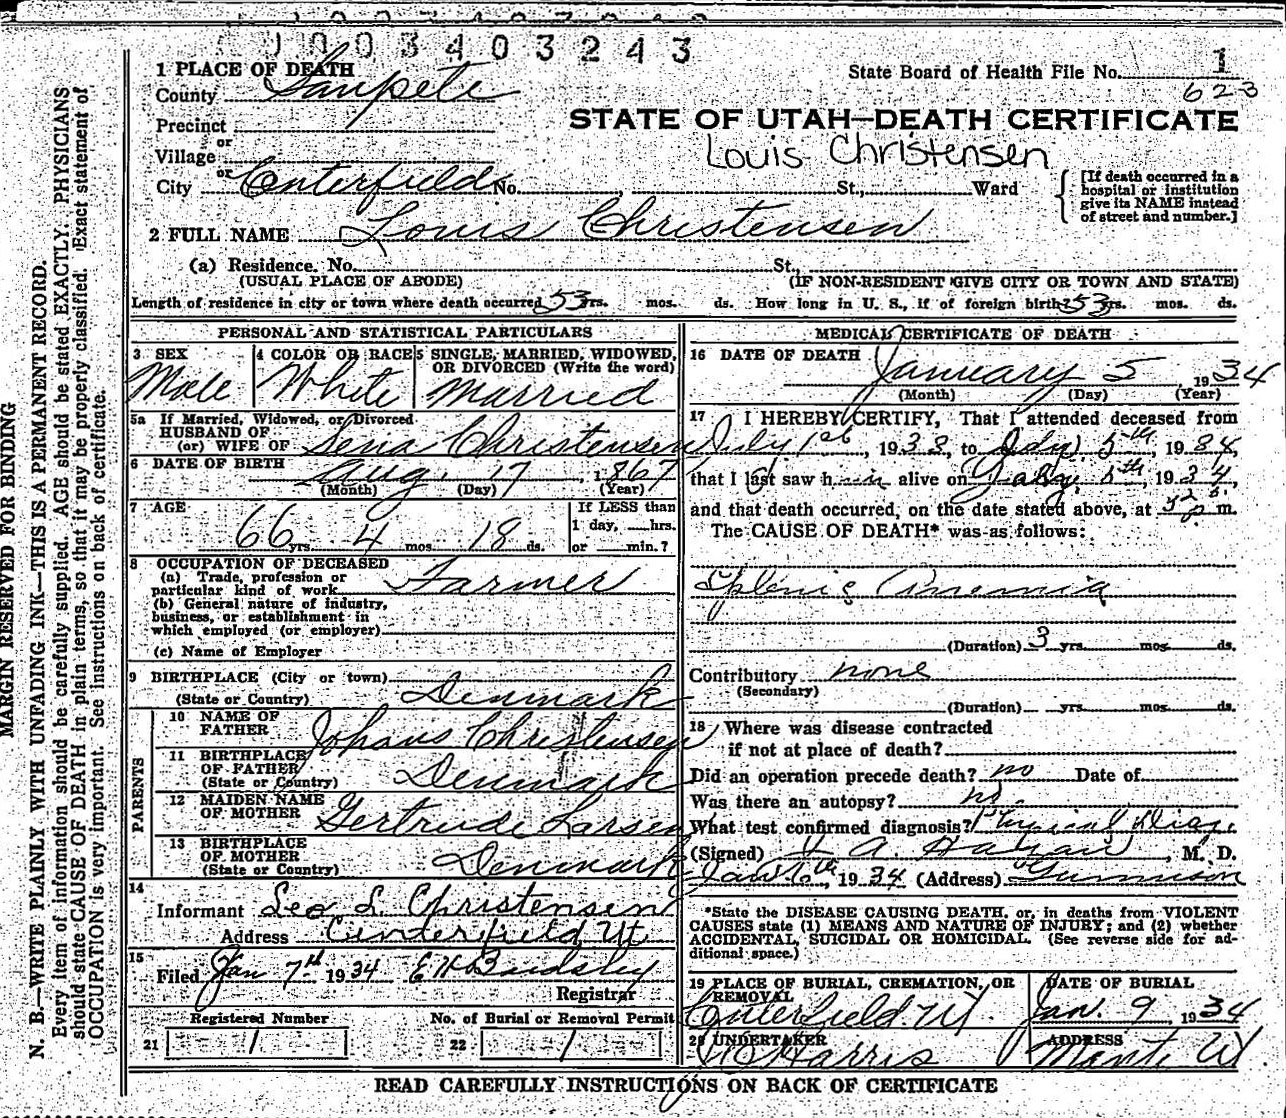 1003403243
1 PLACE OF DEATH
County Sanpete
State Board of Health File No. 1
623
Precinct
or
Village
or
City Centerfield No. St., Ward
STATE OF UTAH—DEATH CERTIFICATE
Louis Christensen
[If death occurred in a
hospital or institution
give its NAME instead
of street and number.]
2 FULL NAME Louis Christensen
(a) Residence. No. St.
(USUAL PLACE OF ABODE) (IF NON-RESIDENT GIVE CITY OR TOWN AND STATE)
Length of residence in city or town where death occurred 53 yrs. mos. ds. How long in U. S., if of foreign birth? 53 yrs. mos. ds.
PERSONAL AND STATISTICAL PARTICULARS
3 SEX
Male
4 COLOR OR RACE
White
5 SINGLE, MARRIED, WIDOWED,
OR DIVORCED (Write the word)
Married
5a If Married, Widowed, or Divorced
HUSBAND OF
(or) WIFE OF Sena Christensen
6 DATE OF BIRTH Aug. 17, 1867
(Month) (Day) (Year)
7 AGE
66 yrs 4 mos 18 ds.
If LESS than
1 day, hrs.
or min.?
8 OCCUPATION OF DECEASED
(a) Trade, profession or
particular kind of work Farmer
(b) General nature of industry,
business, or establishment in
which employed (or employer)
(c) Name of Employer
9 BIRTHPLACE (City or town)
(State or Country) Denmark
PARENTS
10 NAME OF
FATHER Johans Christensen
11 BIRTHPLACE
OF FATHER
(State or Country) Denmark
12 MAIDEN NAME
OF MOTHER Gertrude Larsen
13 BIRTHPLACE
OF MOTHER
(State or Country) Denmark
14
Informant Leo L. Christensen
Address Centerfield Ut
15
Filed Jan 7th 1934 E H
Registrar
Registered Number No. of Burial or Removal Permit
21 1 22 1
MEDICAL CERTIFICATE OF DEATH
16 DATE OF DEATH
January 5, 1934
(Month) (Day) (Year)
17 I HEREBY CERTIFY, That I attended deceased from
July 1st, 1933, to 5th, 1934,
that I last saw him alive on 5th, 1934,
and that death occurred, on the date stated above, at m.
The CAUSE OF DEATH* was as follows:
Splenic Anemia
(Duration) 3 yrs. mos. ds.
Contributory none
(Secondary)
(Duration) yrs. mos. ds.
18 Where was disease contracted
if not at place of death?
Did an operation precede death? no Date of
Was there an autopsy? no
What test confirmed diagnosis? Physical Diag.
(Signed) A. Hagan, M. D.
Jan 6th, 1934 (Address) Gunnison
*State the DISEASE CAUSING DEATH, or, in deaths from VIOLENT
CAUSES state (1) MEANS AND NATURE OF INJURY; and (2) whether
ACCIDENTAL, SUICIDAL OR HOMICIDAL. (See reverse side for ad-
ditional space.)
19 PLACE OF BURIAL, CREMATION, OR
REMOVAL
Centerfield Ut
DATE OF BURIAL
Jan. 9, 1934
20 UNDERTAKER
Harris
ADDRESS
Manti Ut
READ CAREFULLY INSTRUCTIONS ON BACK OF CERTIFICATE
MARGIN RESERVED FOR BINDING
N. B.—WRITE PLAINLY WITH UNFADING INK—THIS IS A PERMANENT RECORD.
Every item of information should be carefully supplied. AGE should be stated EXACTLY. PHYSICIANS
should state CAUSE OF DEATH in plain terms, so that it may be properly classified. Exact statement of
OCCUPATION is very important. See instructions on back of certificate.